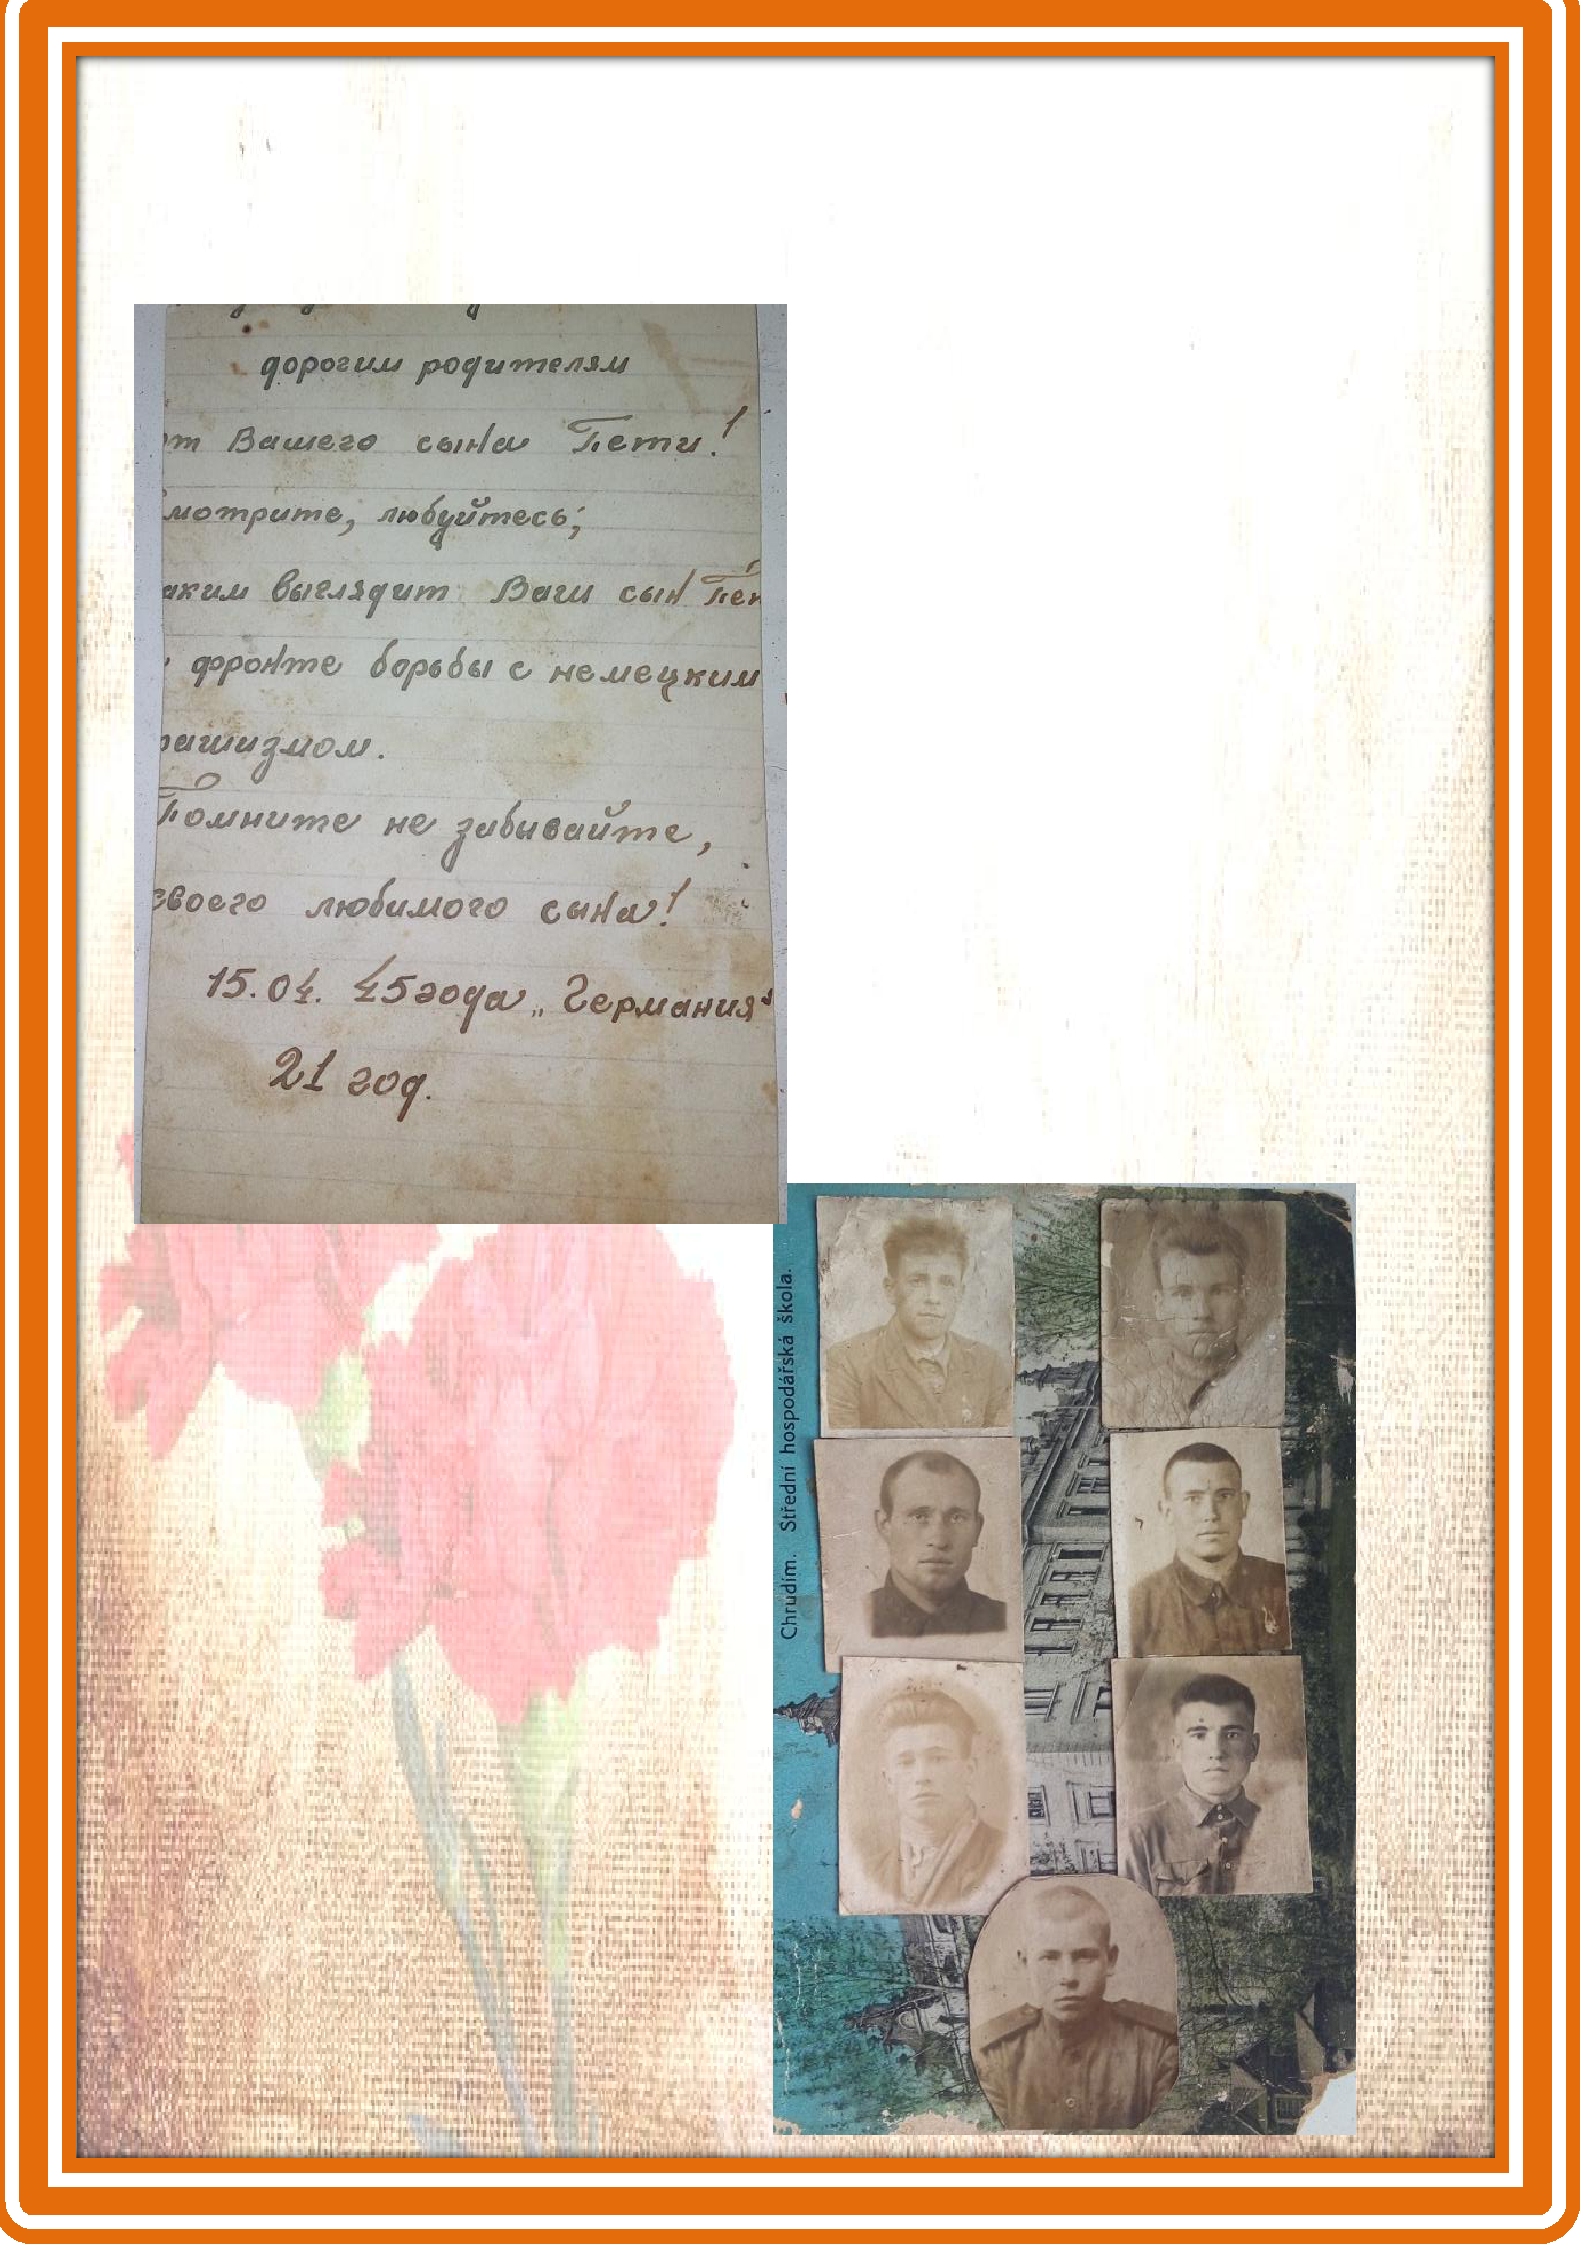 дорогим родителям
от Вашего сына Пети!
мотрите, любуйтесь;
аким выглядит Ваш сын Пет
фронте борьбы с немецким
фашизмом.
Помните не забывайте,
своего любимого сына!
15.04. 45 года „Германия"
21 год.
Chrudim. Střední hospodářská škola.